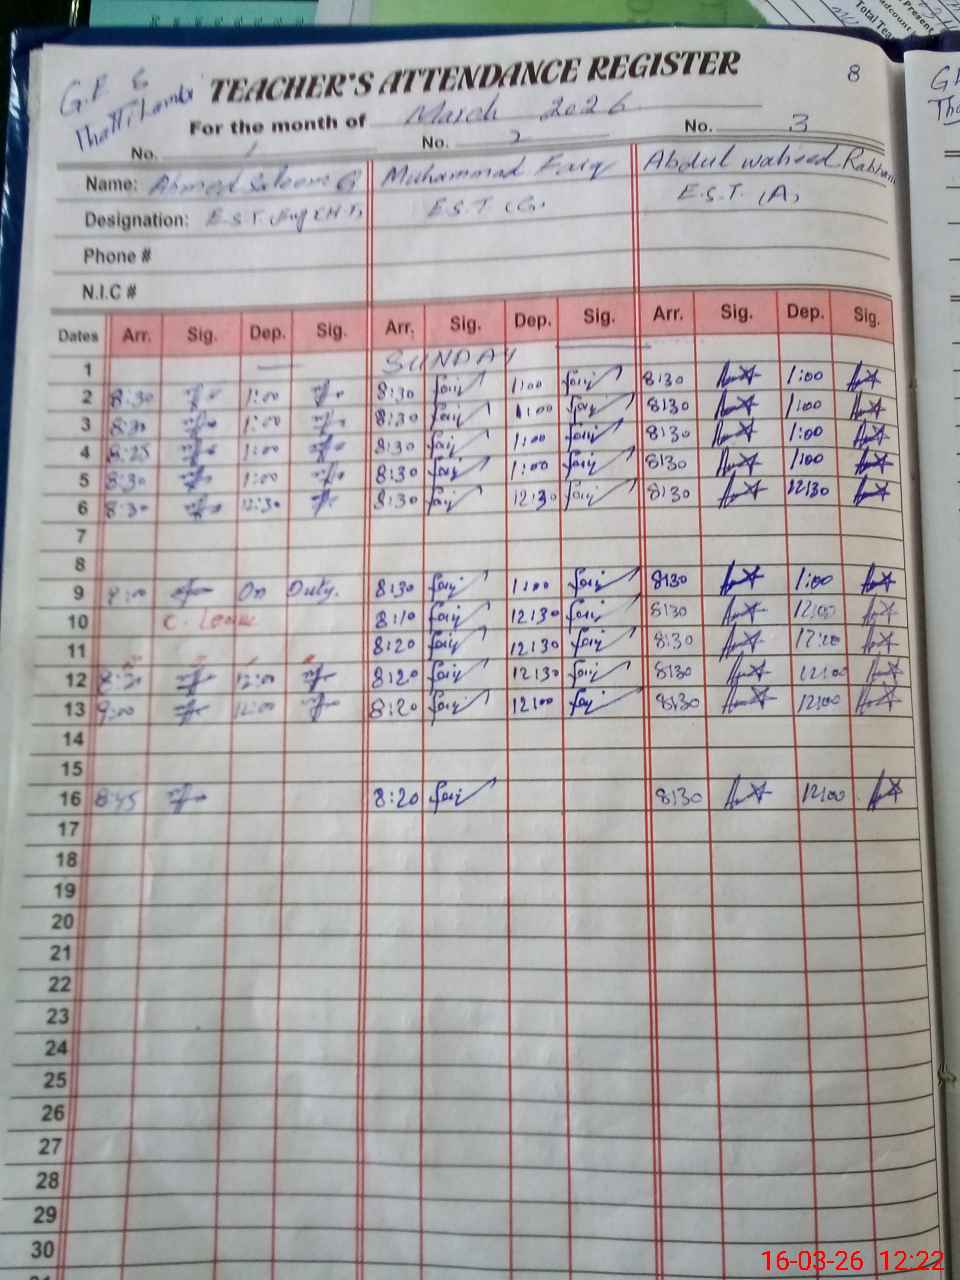 G.E S
Thattikambi
TEACHER'S ATTENDANCE REGISTER
8
For the month of March 2026
No. 1 No. 2 No. 3
Name: Ahmed Saleem Muhammad Faiq Abdul waheed Rabbani
Designation: E.S.T. E.S.T (G). E.S.T. (A)
Phone #
N.I.C #
Dates Arr. Sig. Dep. Sig. Arr. Sig. Dep. Sig. Arr. Sig. Dep. Sig.
1 SUNDAY
2 8:30 1:00 8:30 faiq 1:00 faiq 8:30 1:00
3 8:30 1:00 8:30 faiq 1:00 faiq 8:30 1:00
4 8:25 1:00 8:30 faiq 1:00 faiq 8:30 1:00
5 8:30 1:00 8:30 faiq 1:00 faiq 8:30 1:00
6 8:30 12:30 8:30 faiq 12:30 faiq 8:30 12:30
7
8
9 On Duty. 8:30 faiq 1:00 faiq 8:30 1:00
10 C. Leave 8:10 faiq 12:30 faiq 8:30 12:00
11 8:20 faiq 12:30 faiq 8:30 12:00
12 8:30 12:00 8:20 faiq 12:30 faiq 8:30 12:00
13 9:00 12:00 8:20 faiq 12:00 faiq 8:30 12:00
14
15
16 8:45 8:20 faiq 8:30 12:00
17
18
19
20
21
22
23
24
25
26
27
28
29
30
16-03-26 12:22